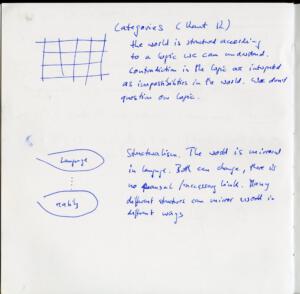 Categories (Kant 12)
the world is structured according
to a logic we can understand.
Contradiction in the logic are interpreted
as impossibilities in the world. We don't
question our logic.
Language
reality
Structuralism. The world is mirrored
in language. Both can change, there is
no causal / necessary link. Many
different structures can mirror world in
different ways